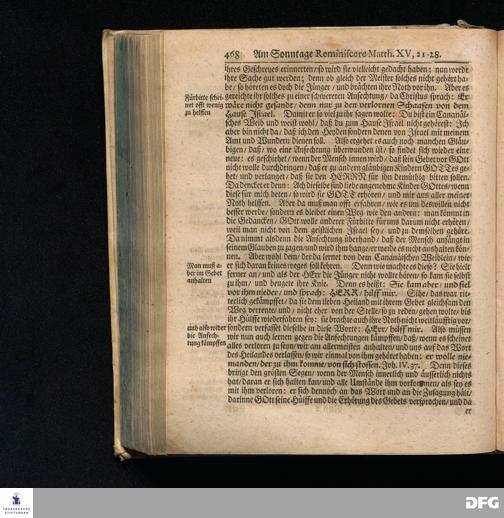 468 Am Sonntage Reminiscere Matth. XV, 21-28.
ihres Geschreyes erinnerten/ so wird sie vielleicht gedacht haben: nun werde
ihre Sache gut werden; denn ob gleich der Meister solches nicht gehört ha-
be/ so höreten es doch die Jünger/ und brächten ihre Noth vor ihn. Aber es
gereichte ihr solches zu einer schwereren Anfechtung/ da Christus sprach: Er
Fürbitte schei-
net offt wenig
zu helffen
wäre nicht gesandt/ denn nur zu den verlornen Schaafen von dem
Hause Israel. Damit er so viel zu ihr sagen wolte: Du bist ein Cananäi-
sches Weib und weist wohl/ daß du zum Hause Israel nicht gehörest: Ich
aber bin nicht da/ daß ich den Heyden sondern denen von Israel mit meinem
Amt und Wundern dienen soll. Also ergehet es auch noch manchen Gläu-
bigen/ daß/ wo eine Anfechtung überwunden ist/ so findet sich wieder eine
neue: es geschiehet/ wenn der Mensch innen wird/ daß sein Gebet vor GOtt
nicht wolle durchdringen/ daß er zu andern gläubigen Kindern GOTTes ge-
het/ und verlanget/ daß sie den HERRN für ihn demüthig bitten sollen.
Da dencket er denn: Ach dieselbe sind liebe angenehme Kinder GOttes/ wenn
diese für mich beten/ so wird sie GOTT erhören/ und mir aus aller meiner
Noth helffen. Aber da muß man offt erfahren/ wie es um deswillen nicht
besser werde/ sondern es bleibet einen Weg wie den andern: man kömmt in
die Gedancken/ GOtt wolle anderer Fürbitte für uns darum nicht erhören/
weil man nicht von dem geistlichen Israel sey/ und zu demselben gehöre.
Da nimmt alsdenn die Anfechtung überhand/ daß der Mensch anfängt in
seinem Glauben zu zagen/ und wird ihm bange/ er werde es nicht aushalten kön-
nen. Aber wohl dem/ der da lernet von dem Cananäischen Weiblein/ wie
er sich daran keines weges soll kehren. Denn wie machte es diese? Sie hielt
Man muß a-
ber im Gebet
anhalten
ferner an/ und als der HErr die Jünger nicht wollte hören/ so kam sie selbst
zu ihm/ und beugete ihre Knie. Denn es heißt: Sie kam aber/ und fiel
vor ihm nieder/ und sprach: HERR/ hilff mir. Sihe/ das war rit-
terlich gekämpffet/ da sie dem lieben Heiland mit ihrem Gebet gleichsam den
Weg verrente/ und/ nicht eher von der Stelle/ so zu reden/ gehen wolte/ bis
ihr Hülffe wiederfahren sey: sie brachte auch ihre Noth nicht weitläufftig vor/
und also wider
die Anfech-
tung kämpffen
sondern verfasset dieselbe in diese Worte: HErr/ hilff mir. Also müssen
wir nun auch lernen gegen die Anfechtungen kämpffen/ daß/ wenn es scheinet
alles verloren zu seyn/ wir am allermeisten anhalten/ und uns auf das Wort
des Heilandes verlassen/ so wir einmal von ihm gehöret haben: er wolle nie-
manden/ der zu ihm komme/ von sich stossen. Joh. IV. 37. Denn dieses
bringt den grösten Segen/ wenn der Mensch innerlich und äusserlich nichts
hat/ daran er sich halten kan/ und alle Umstände ihm vorkommen/ als sey es
mit ihm verloren: er sich dennoch an das Wort und an die Zusagung hält/
darinne GOtt seine Hülffe und die Erhörung des Gebets versprochen/ und da
er
FRANCKESCHE
STIFTUNGEN
DFG